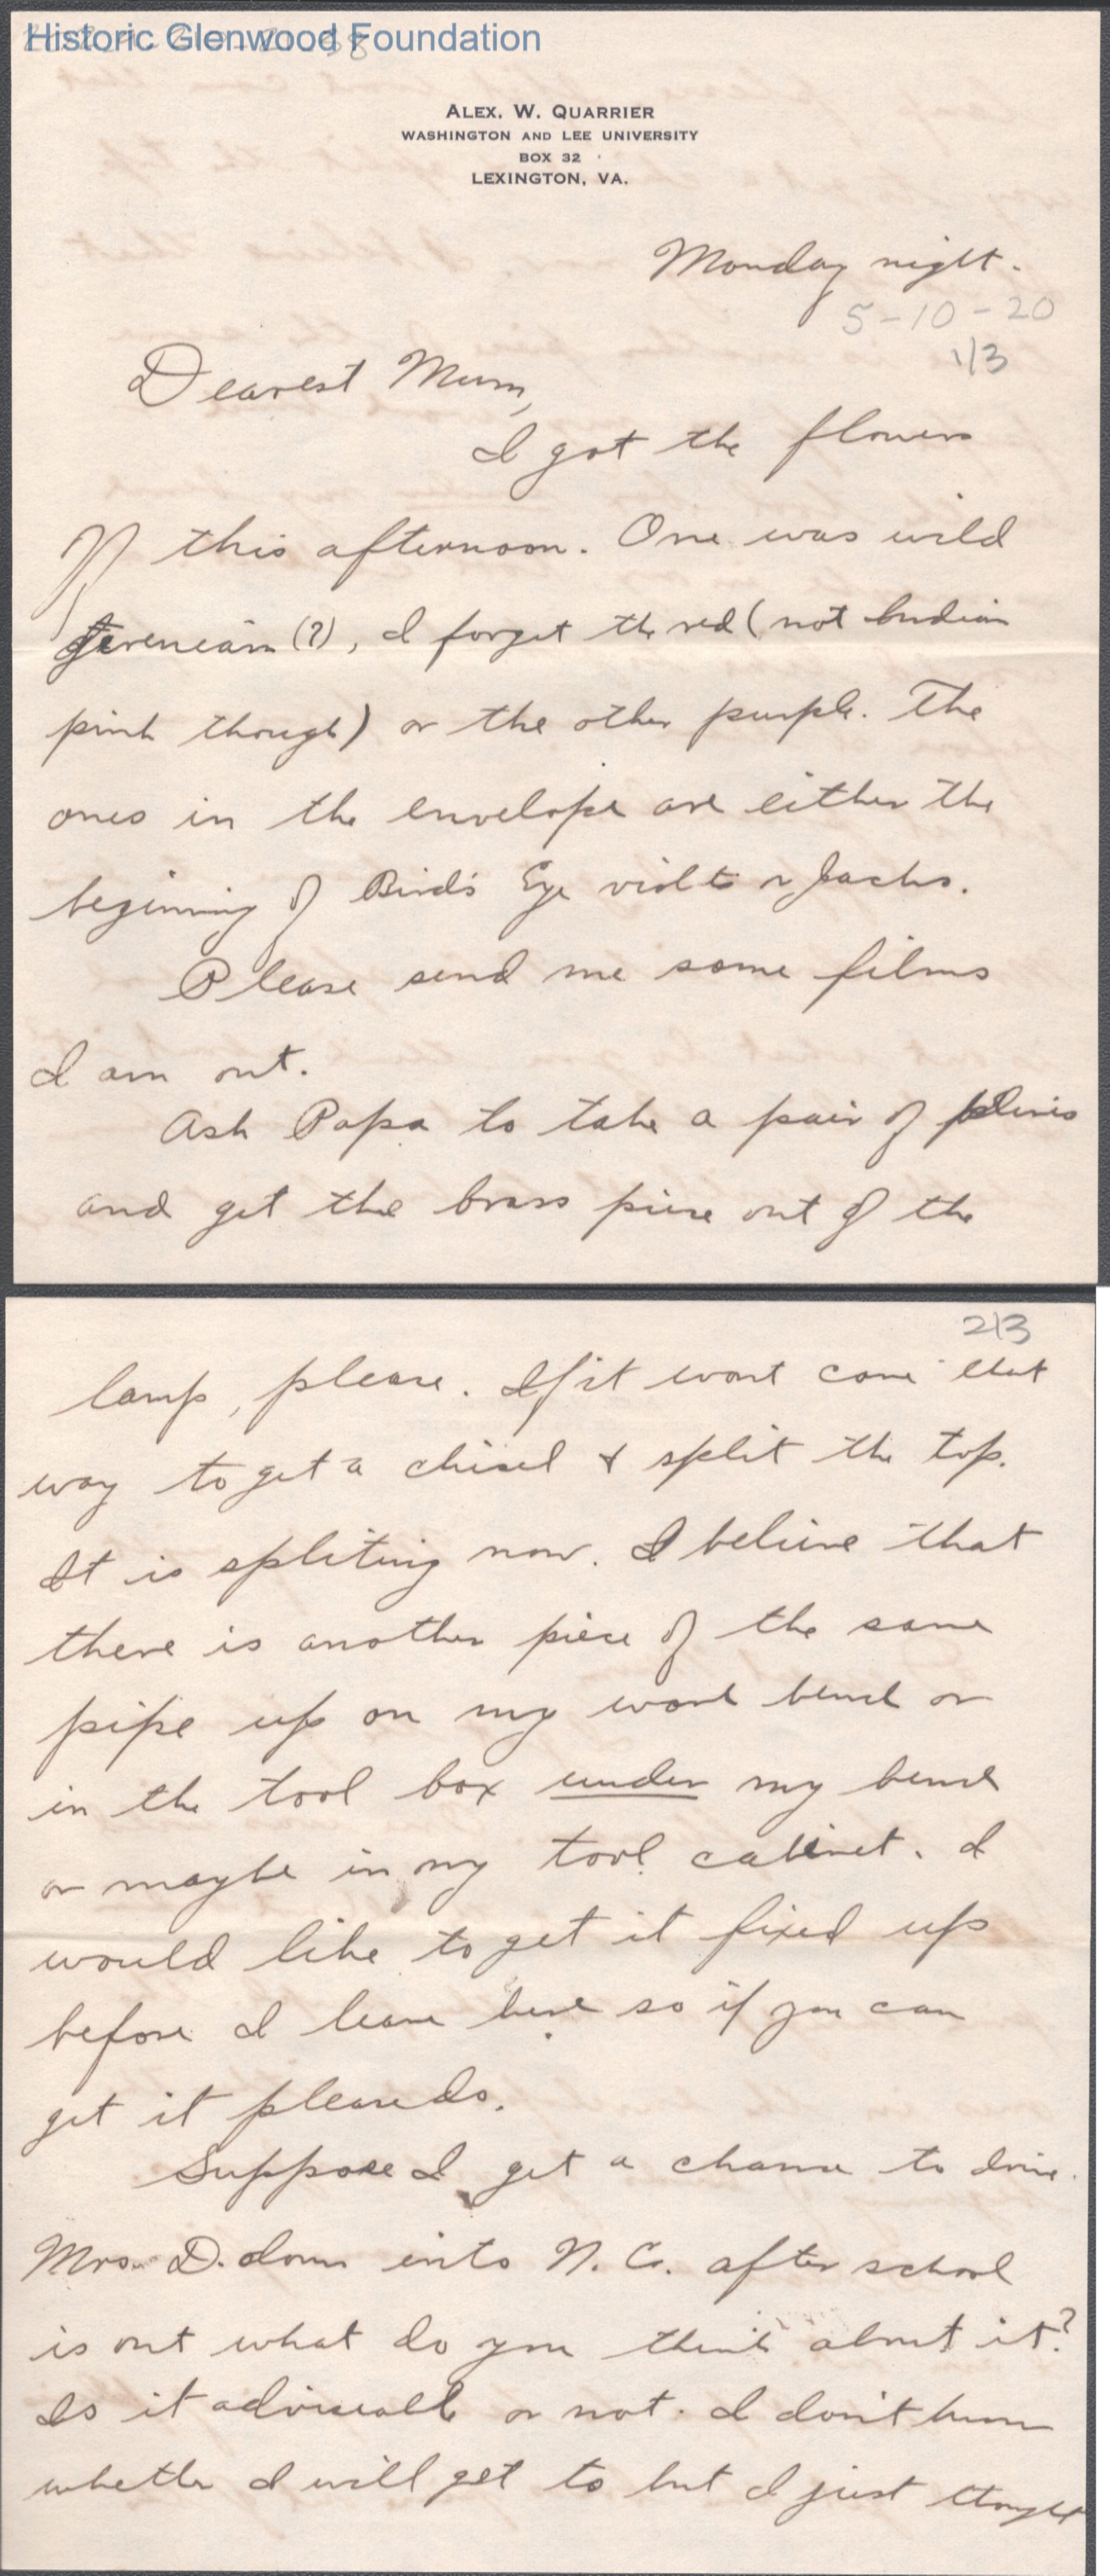 Historic Glenwood Foundation
ALEX. W. QUARRIER
WASHINGTON AND LEE UNIVERSITY
BOX 32
LEXINGTON, VA.
Monday night.
5-10-20
1/3
Dearest Mum,
I got the flowers
this afternoon. One was wild
(?), I forget the red (not Indian
pink though) or the other purple. The
ones in the envelope are either the
beginning of Bird's Eye violt or Jacks.
Please send me some films
I am out.
Ask Papa to take a pair of
and get the brass piece out of the
2/3
lamp, please. If it wont come that
way to get a chisel & split the top.
It is spliting now. I believe that
there is another piece of the same
pipe up on my work bench or
in the tool box under my bench
or maybe in my tool cabinet. I
would like to get it fixed up
before I leave here so if you can
get it please do.
Suppose I get a chance to drive
Mrs. D. down into N. C. after school
is out what do you think about it?
Is it adviseable or not. I don't know
whether I will get to but I just thought